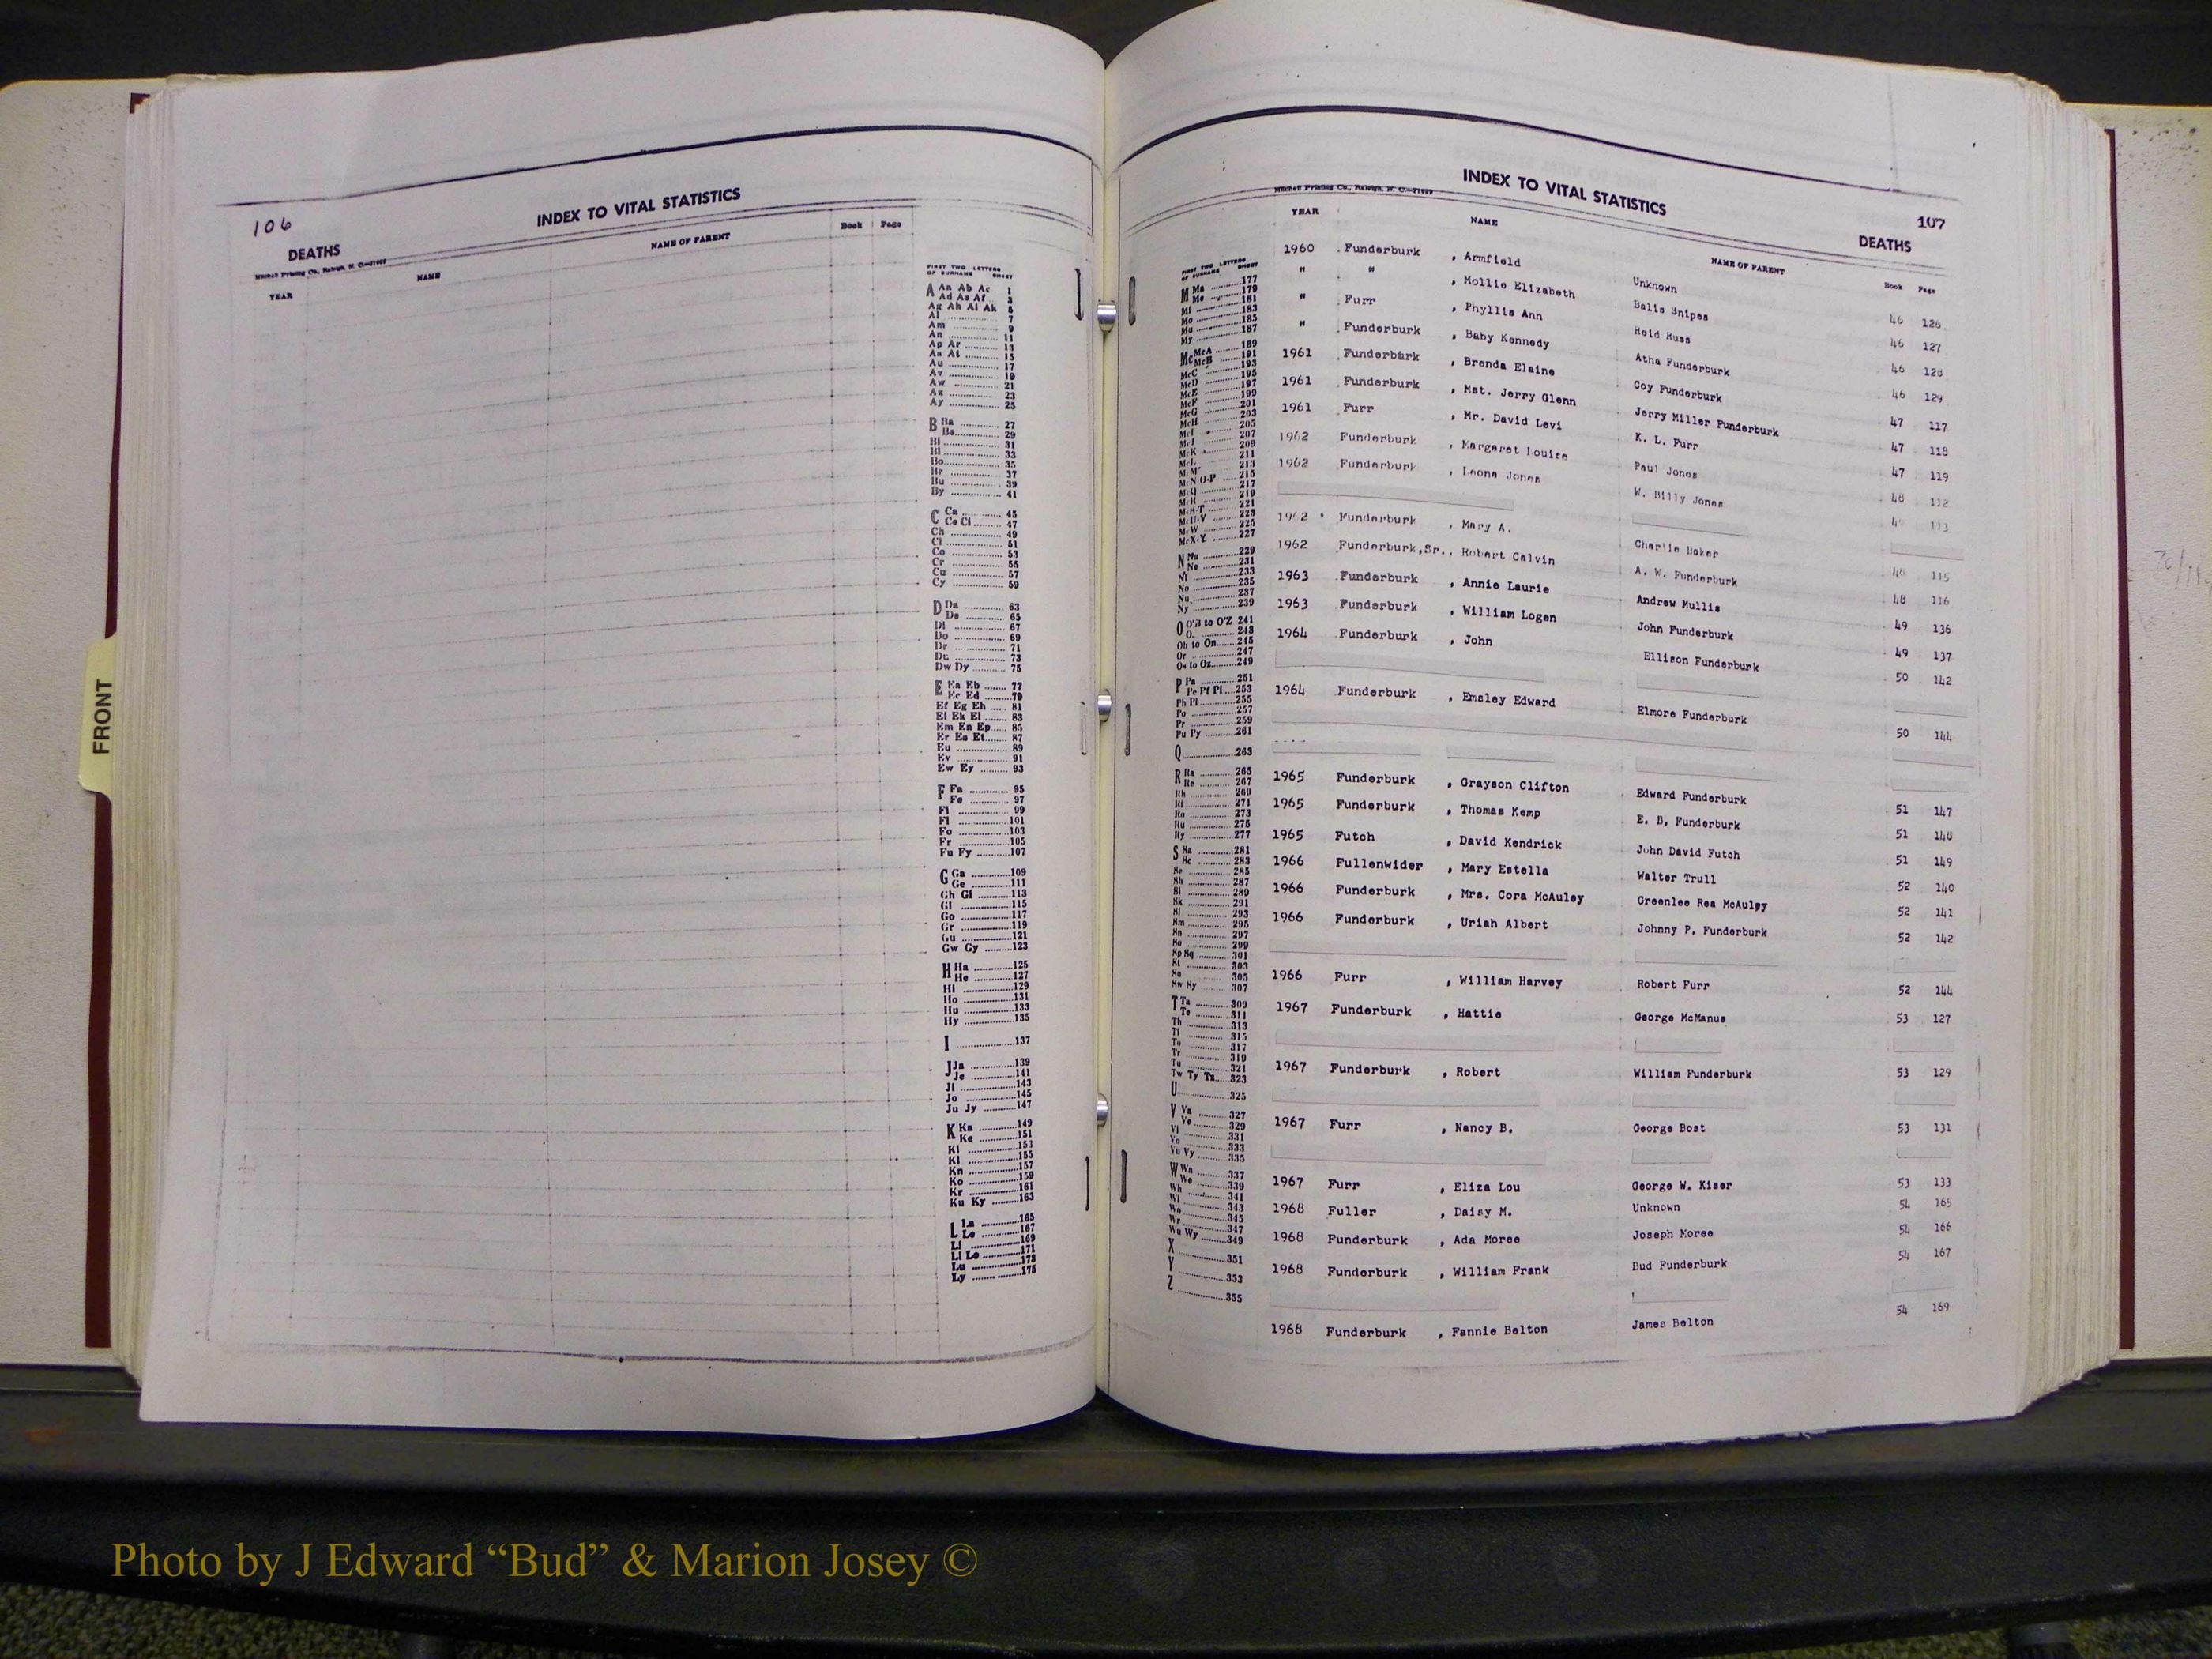 106
INDEX TO VITAL STATISTICS
DEATHS
Mitchell Printing Co., Raleigh, N. C.
YEAR NAME NAME OF PARENT Book Page
FIRST TWO LETTERS
OF SURNAME SHEET
A Aa Ab Ac 1
Ad Ae Af 3
Ag Ah Ai Ak 5
Al 7
Am 9
An 11
Ap Ar 13
As At 15
Au 17
Av 19
Aw 21
Ax 23
Ay 25
B Ba 27
Be 29
Bi 31
Bl 33
Bo 35
Br 37
Bu 39
By 41
C Ca 45
Ce Ci 47
Ch 49
Cl 51
Co 53
Cr 55
Cu 57
Cy 59
D Da 63
De 65
Di 67
Do 69
Dr 71
Du 73
Dw Dy 75
E Ea Eb 77
Ec Ed 79
Ef Eg Eh 81
Ei Ek El 83
Em En Ep 85
Er Es Et 87
Eu 89
Ev 91
Ew Ey 93
F Fa 95
Fe 97
Fi 99
Fl 101
Fo 103
Fr 105
Fu Fy 107
G Ga 109
Ge 111
Gh Gi 113
Gl 115
Go 117
Gr 119
Gu 121
Gw Gy 123
H Ha 125
He 127
Hi 129
Ho 131
Hu 133
Hy 135
I 137
J Ja 139
Je 141
Ji 143
Jo 145
Ju Jy 147
K Ka 149
Ke 151
Ki 153
Kl 155
Kn 157
Ko 159
Kr 161
Ku Ky 163
L La 165
Le 167
Li 169
Ll Lo 171
Lu 173
Ly 175
INDEX TO VITAL STATISTICS
Mitchell Printing Co., Raleigh, N. C.
107
DEATHS
YEAR NAME NAME OF PARENT Book Page
FIRST TWO LETTERS
OF SURNAME SHEET
M Ma 177
Me 179
Mi 181
Mo 183
Mu 185
My 187
Mc McA 189
McB 191
McC 193
McD 195
McE 197
McF 199
McG 201
McH 203
McI 205
McJ 207
McK 209
McL 211
McM 213
McN-O-P 215
McQ 217
McR 219
McS-T 221
McU-V 223
McW 225
McX-Y 227
N Na 229
Ne 231
Ni 233
No 235
Nu 237
Ny 239
O O'B to O'Z 241
O. 243
Ob to On 245
Or 247
Os to Oz 249
P Pa 251
Pe Pf Pi 253
Ph Pl 255
Po 257
Pr 259
Pu Py 261
Q 263
R Ra 265
Re 267
Rh 269
Ri 271
Ro 273
Ru 275
Ry 277
S Sa 281
Sc 283
Se 285
Sh 287
Si 289
Sk 291
Sl 293
Sm 295
Sn 297
So 299
Sp Sq 301
St 303
Su 305
Sw Sy 307
T Ta 309
Te 311
Th 313
Ti 315
To 317
Tr 319
Tu 321
Tw Ty Tz 323
U 325
V Va 327
Ve 329
Vi 331
Vo 333
Vu Vy 335
W Wa 337
We 339
Wh 341
Wi 343
Wo 345
Wr 347
Wu Wy 349
X 351
Y 353
Z 355
1960 Funderburk , Armfield Unknown 46 126
" " , Mollie Elizabeth Balis Snipes 46 127
" Furr , Phyllis Ann Reid Huss 46 128
" Funderburk , Baby Kennedy Atha Funderburk 46 129
1961 Funderburk , Brenda Elaine Coy Funderburk 47 117
1961 Funderburk , Mst. Jerry Glenn Jerry Miller Funderburk 47 118
1961 Furr , Mr. David Levi K. L. Furr 47 119
1962 Funderburk , Margaret Louise Paul Jones 48 112
1962 Funderburk , Leona Jones W. Billy Jones 48 113
1962 Funderburk , Mary A. Charlie Baker 48 115
1962 Funderburk,Sr., Robert Calvin A. W. Funderburk 48 116
1963 Funderburk , Annie Laurie Andrew Mullis 49 136
1963 Funderburk , William Logen John Funderburk 49 137
1964 Funderburk , John Ellison Funderburk 50 142
1964 Funderburk , Emsley Edward Elmore Funderburk 50 144
1965 Funderburk , Grayson Clifton Edward Funderburk 51 147
1965 Funderburk , Thomas Kemp E. B. Funderburk 51 148
1965 Futch , David Kendrick John David Futch 51 149
1966 Fullenwider , Mary Estella Walter Trull 52 140
1966 Funderburk , Mrs. Cora McAuley Greenlee Rea McAuley 52 141
1966 Funderburk , Uriah Albert Johnny P. Funderburk 52 142
1966 Furr , William Harvey Robert Furr 52 144
1967 Funderburk , Hattie George McManus 53 127
1967 Funderburk , Robert William Funderburk 53 129
1967 Furr , Nancy B. George Bost 53 131
1967 Furr , Eliza Lou George W. Kiser 53 133
1968 Fuller , Daisy M. Unknown 54 165
1968 Funderburk , Ada Moree Joseph Moree 54 166
1968 Funderburk , William Frank Bud Funderburk 54 167
1968 Funderburk , Fannie Belton James Belton 54 169
FRONT
Photo by J Edward “Bud” & Marion Josey ©